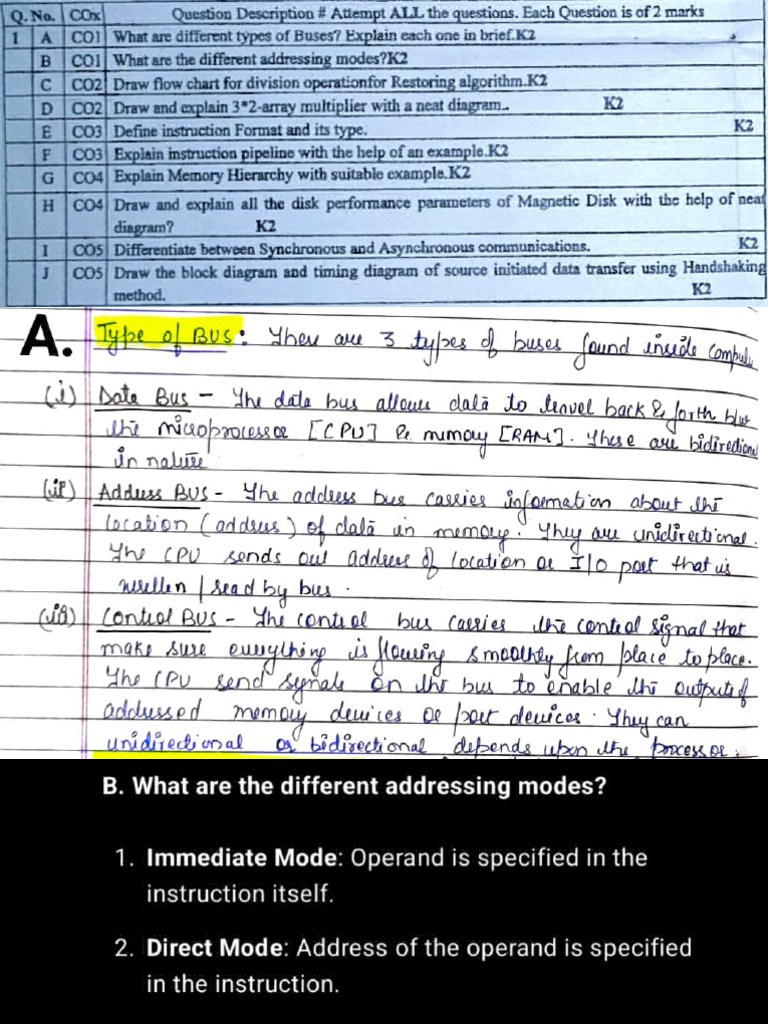 Q. No. COx Question Description # Attempt ALL the questions. Each Question is of 2 marks
1 A CO1 What are different types of Buses? Explain each one in brief.K2
B CO1 What are the different addressing modes?K2
C CO2 Draw flow chart for division operationfor Restoring algorithm.K2
D CO2 Draw and explain 3*2-array multiplier with a neat diagram.. K2
E CO3 Define instruction Format and its type. K2
F CO3 Explain instruction pipeline with the help of an example.K2
G CO4 Explain Memory Hierarchy with suitable example.K2
H CO4 Draw and explain all the disk performance parameters of Magnetic Disk with the help of neat
diagram? K2
I CO5 Differentiate between Synchronous and Asynchronous communications. K2
J CO5 Draw the block diagram and timing diagram of source initiated data transfer using Handshaking
method. K2
A. Type of BUS: There are 3 types of buses found inside
(i) Data Bus - The data bus allows data to travel back & forth b/w
the microprocessor [CPU] & memory [RAM]. These are bidirectional
in nature
(ii) Address BUS - The address bus carries information about the
location (address) of data in memory. They are unidirectional.
The CPU sends out address of location or I/O port that is
written / read by bus.
(iii) Control BUS - The control bus carries the control signal that
make sure everything is flowing smoothly from place to place.
The CPU send synals on the bus to enable the outputs of
addressed memory devices or port devices. They can
unidirectional or bidirectional depends upon the processor.
B. What are the different addressing modes?
1. Immediate Mode: Operand is specified in the
instruction itself.
2. Direct Mode: Address of the operand is specified
in the instruction.